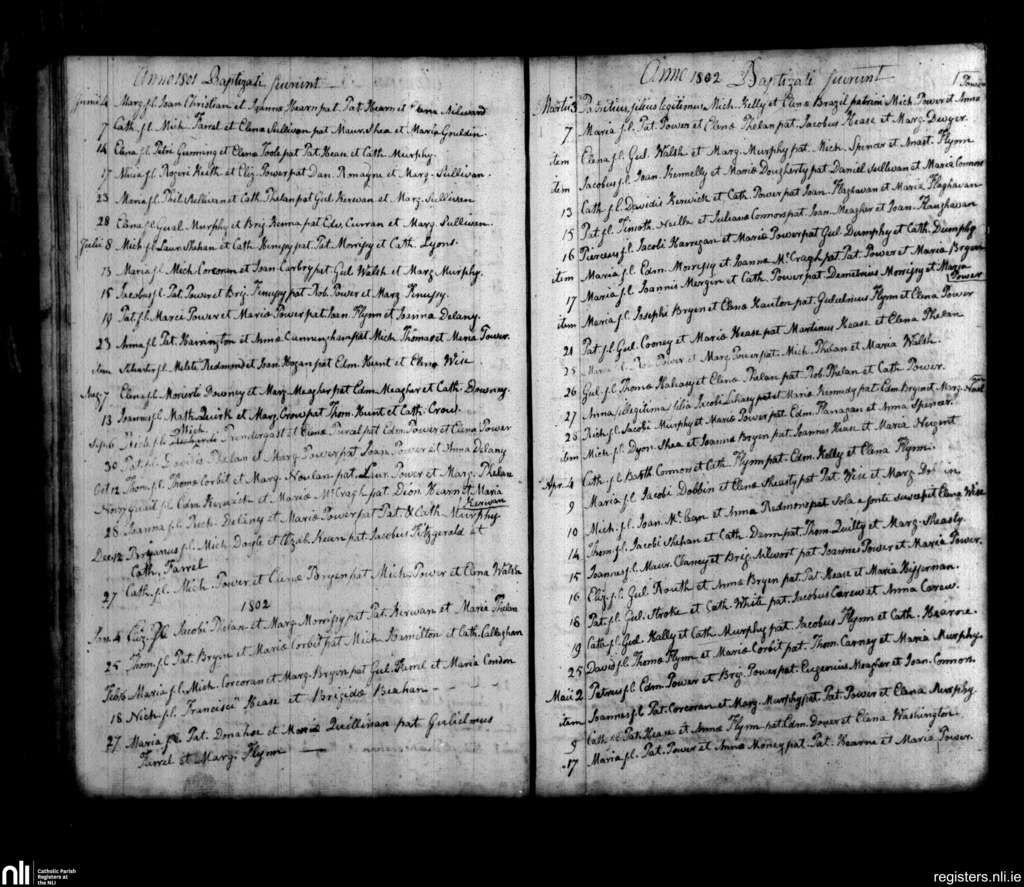 Anno 1801 Baptizati fuerunt
Junii 4 Marg. fl. Joan Christian et Joanna Hearn pat. Pat. Hearn et
7 Cath. fl. Mich. Farrel et Elena Sullivan pat Maur. Shea et Maria Gouldin
14 Elena fl. Petri Gunning et Elena Toole pat Pat. Hease et Cath. Murphy.
17 fl. Rogeri Keith et Eliz. Power pat Dan. et Marg. Sullivan.
23 Maria fl. Phil Sullivan et Cath. Phelan pat Gul. Kerwan et Marg. Sullivan
28 Elena fl. Gual. Murphy et Brig. pat Edv. Curran et Marg. Sullivan.
Julii 8 Mich fl. Laur. Shehan et Cath. pat. Pat. Morrissy et Cath. Lyons.
13 Maria fl. Mich. Corcoran et Joan Carbry pat Gul. Walsh et Marg. Murphy.
15 Jacobus fl. Pat. Power et Brig. pat Rob. Power et Marg.
19 Pat. fl. Marci Power et Maria Power pat Joan. Flynn et Joanna Delany.
23 Anna fl. Pat. Harrington et Anna Cunningham pat Mich. Thomas et Maria Power.
fl. Milite Redmond et Joan Hogan pat Edm. Hunt et Elena Wise
Aug. 7 Elena fl. Downey et Marg. Meagher pat Edm. Meagher et Cath. Downey.
13 Joannes fl. Math. Quirk et Marg. Crow pat Thom. Hunt et Cath. Crow.
Mich.
Sep. 6 fl. Prendergast et Elena Purcel pat Edm Power et Elena Power
30 Pat. fl. Davidis Phelan et Marg. Power pat Joan Power et Anna Delany
Oct 12 Thom. fl. Thoma Corbit et Marg. Noulan pat. Laur. Power et Marg. Phelan
Nov. fl. et Maria McCragh pat. Hearn et Maria
Kerwan
28 Joanna fl. Rich. Delany et Maria Power pat Pat & Cath Murphy
Dec. 12 Bryanus fl. Mich. Doyle et pat Jacobus Fitzgerald et
Cath. Farrel
27 Cath. fl. Mich. Power et Elena Bryen pat Mich. Power et Elena Walsh
1802
Jan. 4 Eliz. fl. Jacobi Phelan et Marg. Morrissy pat Pat. Kerwan et Maria Phelan
25 Thom. fl. Pat. Bryen et Maria Corbit pat Mich Hamilton et Cath. Callaghan
Feb. Maria fl. Mich. Corcoran et Marg. Bryen pat Gul. Farrel et Maria Condon
18 Nich. fl. Francisci Hease et Brigida Beahan
27 Maria fl. Pat. Donahoe et Maria Quillinan pat Gulielmus
Farrel et Marg. Flynn
Anno 1802 Baptizati fuerunt
Power
Martii 3 Patritius, filius legitimus Mich. Kelly et Elena Brazil patrini Mich Power et Anna
7 Maria fl. Pat. Power et Elena Phelan pat. Jacobus Hease et Marg. Dwyer.
item Elena fl. Gul. Walsh et Marg. Murphy pat. Mich. Spencer et Anast. Flynn
item Jacobus fl. Joan. Kennelly et Maria Dougherty pat Daniel Sullivan et Maria Connors
13 Cath. fl. Davidis Kerwick et Cath. Power pat Joan. Flaghavan et Maria Flaghavan
15 Pat. fl. Timoth. et Juliana Connors pat Joan. Meagher et Joan. Flanghavan
16 fl. Jacobi Harrigan et Maria Power pat Gul. Dumphy et Cath. Dumphy.
item Maria fl. Edm. Morrissy et Joanna McCragh pat Pat. Power et Maria Bryen
17 Maria fl. Joannis Mergin et Cath. Power pat Morrissy et Maria
Power
item Maria fl. Josephi Bryen et Elena pat Gulielmus Flynn et Elena Power
21 Pat. fl. Gul. Cooney et Maria Hease pat Martinus Hease et Elena Phelan
25 Power et Marg. Power pat. Mich. Phelan et Maria Walsh.
26 Gul. fl. Thoma et Elena Phelan pat Rob. Phelan et Cath. Power.
27 Anna illegitima filia Jacobi et Maria Kennedy pat Edm. Bryen et Marg.
28 Rich. fl. Jacobi Murphy et Maria Power pat Edm. Flanagan et Anna Spencer.
item Mich. fl. Dyon. Shea et Joanna Bryen pat Joannes Hease et Maria Nugent
Apr. 4 Cath. fl. Barth Connor et Cath. Flynn pat. Edm. Kelly et Elena Flynn.
9 Maria fl. Jacobi Dobbin et Elena Sheasty pat Pat. Wise et Marg. Dobbin.
10 Mich. fl. Joan. et Anna Redmond pat Sola a fonte suscepit Elena Wise
14 Thom. fl. Jacobi Shehan et Cath. Dunn pat. Thom Quilty et Marg. Sheasly.
15 Joannes fl. Maur. Clancy et Brig. pat. Joannes Power et Maria Power.
16 Eliz. fl. Gul. Routh et Anna Bryen pat. Pat. Hease et Maria Higgernan.
18 Pat. fl. Gul. Stroke et Cath. White pat. Jacobus Carew et Anna Carew.
19 Cath. fl. Gul. Kelly et Cath. Murphy pat. Jacobus Flynn et Cath. Hearne.
25 David fl. Thoma Flynn et Maria Corbit pat. Thom. Carney et Maria Murphy.
Maii 2 Petrus fl. Edm. Power et Brig. Power pat. Eugenius Meagher et Joan. Connors.
item Joannes fl. Pat. Corcoran et Marg. Murphy pat. Pat. Power et Elena Murphy.
9 Cath. fl. Pat. Hease et Anna Flynn pat Edm. Dwyer et Elena Washington.
17 Maria fl. Pat. Power et Anna Money pat. Pat. Hearne et Maria Power.
nli
Catholic Parish
Registers at
the NLI
registers.nli.ie